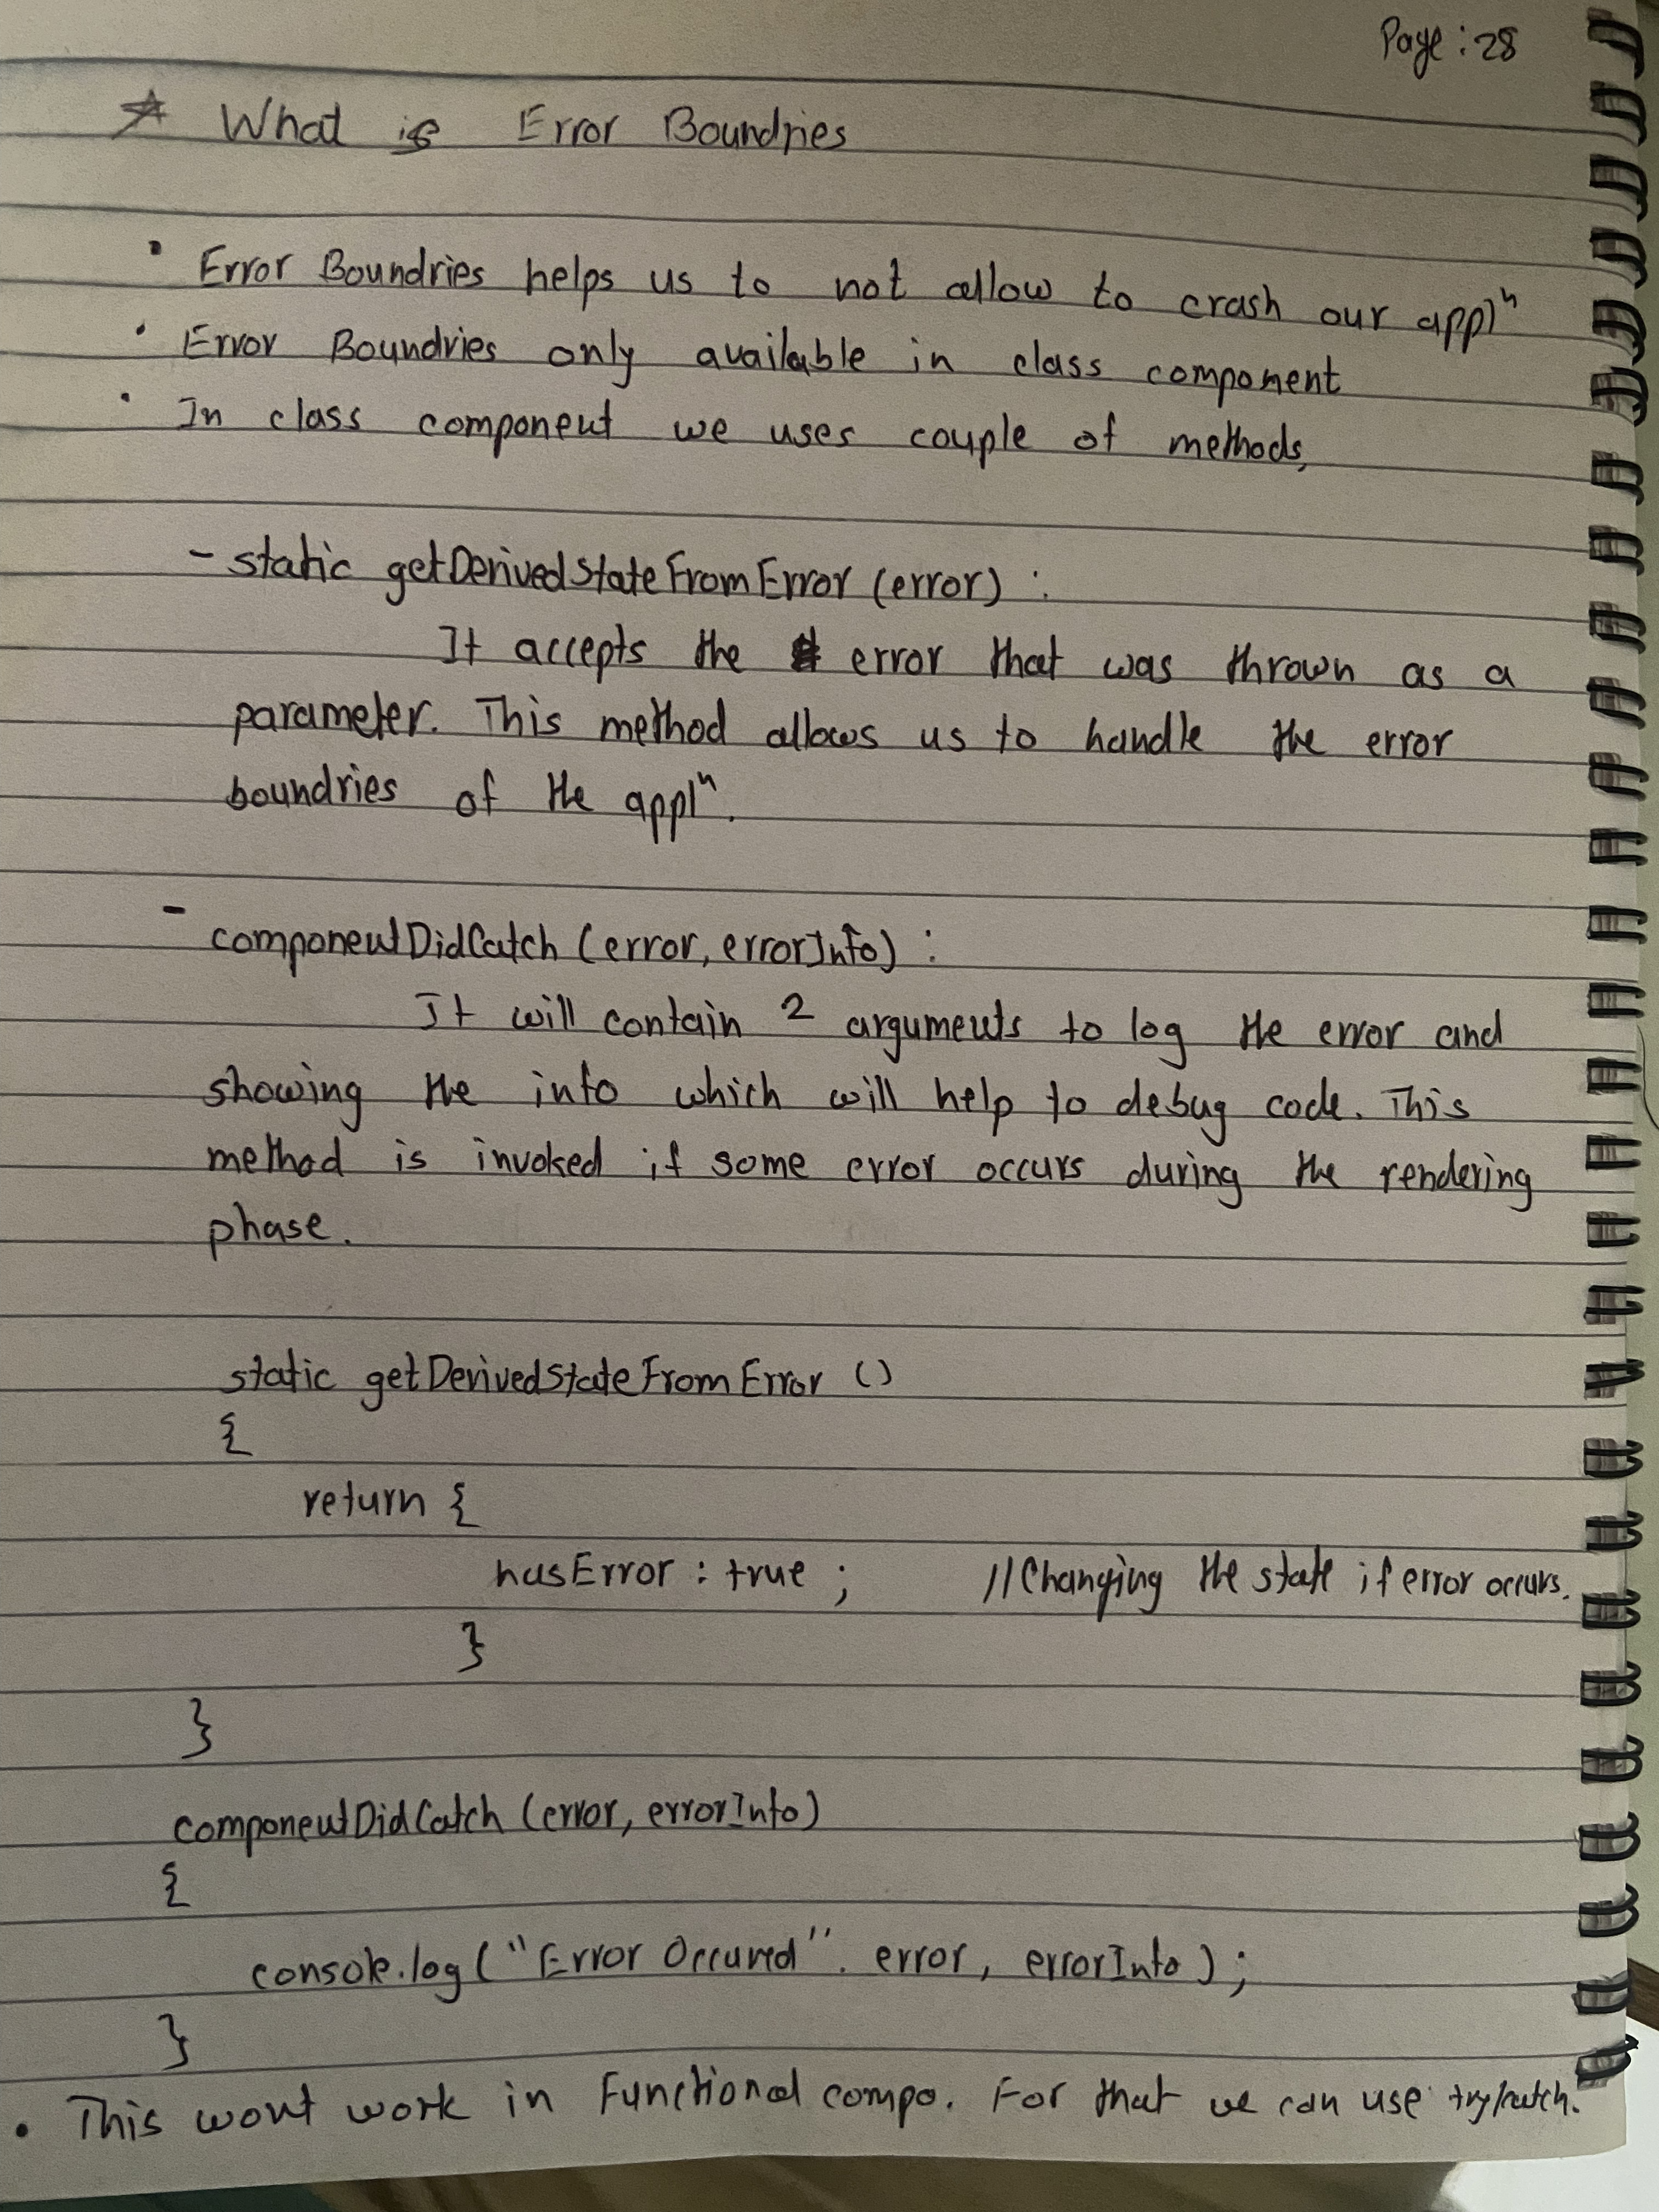 Page: 28
☆ What is Error Boundries
• Error Boundries helps us to not allow to crash our applⁿ
• Error Boundries only available in class component
• In class component we uses couple of methods,
- static getDerivedStateFromError (error) :
It accepts the error that was thrown as a
parameter. This method allows us to handle the error
boundries of the applⁿ.
- componentDidCatch (error, errorInfo) :
It will contain 2 arguments to log the error and
showing the info which will help to debug code. This
method is invoked if some error occurs during the rendering
phase.
static getDerivedStateFromError ()
{
return {
hasError : true ; //Changing the state if error occurs.
}
}
componentDidCatch (error, errorInfo)
{
console.log ("Error Occured". error, errorInfo) ;
}
• This wont work in Functional compo. For that we can use try/catch.